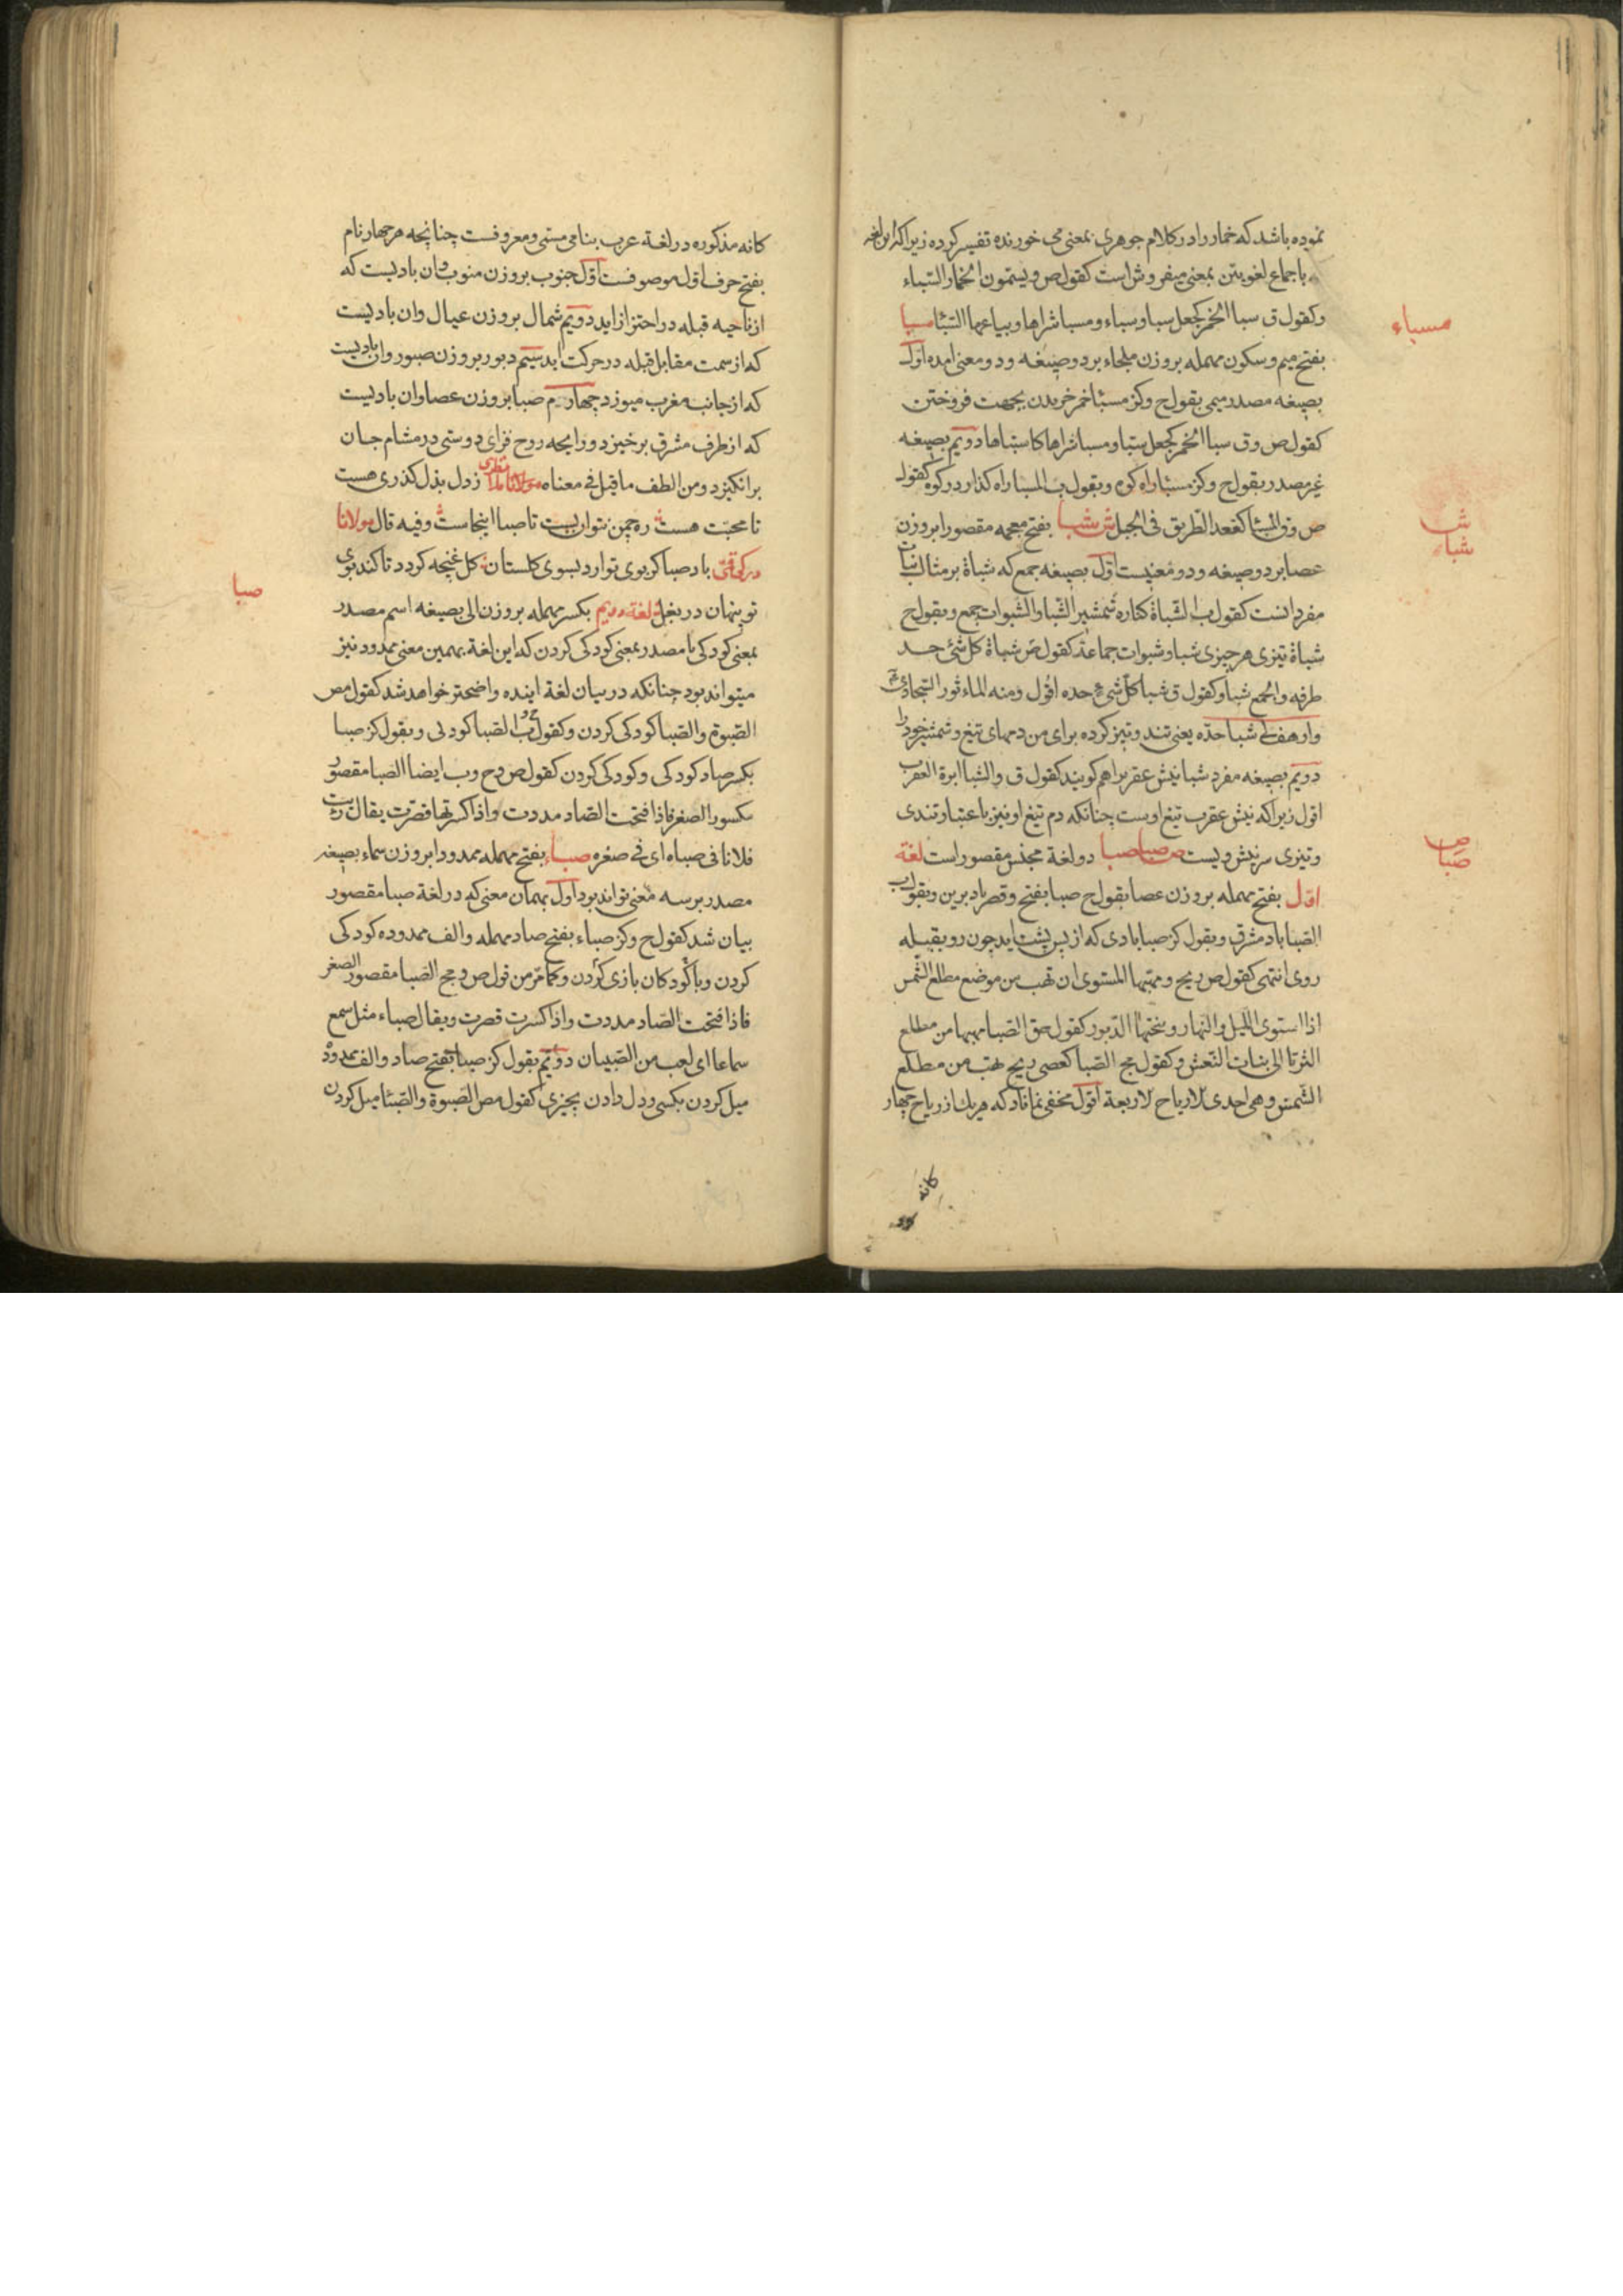 نموده باشد که خمار را در کلام جوهری بمعنی می خورنده تفسیر کرده زیرا که این لغه
باجماع لغویین بمعنی میفروش است کقول ص ویسمون الخمار السباء
وکقول ق سبا الخمر کجعل سبا وسباء ومسبا شراها وبیاعها السبا مسبا
مسباء
بفتح میم وسکون مهمله بروزن ملجاء بر دو صیغه ودو معنی امده اول
بصیغه مصدر میمی بقول ح وکز مسبئا خمر خریدن بجهت فروختن
کقول ص وق سبا الخمر کجعل سبا ومسبا شراها کاستباها دویم بصیغه
غیر مصدر بقول ح وکز مسبئا راه کوه وبقول ب المسبا راه کذار در کوه کقول
ص وق المسبا کمقعد الطریق فی الجبل ش شبا بفتح معجمه مقصورا بروزن
ش
شبا
عصا بر دو صیغه ودو معنیست اول بصیغه جمع که شباة بر مثال نبات
مفرد انست کقول ب الشباة کناره شمشیر الشبا والشبوات جمع وبقول ح
شباة تیزی هر چیزی شبا وشبوات جماعة کقول ص شباة کل شئ حد
طرفه والجمع شبا وکقول ق شبا کل شئ حده اقول ومنه الماءثور السجادی
وارهف لی شبا حده یعنی تند وتیز کرده برای من دمهای تیغ وشمشیر خود را
دویم بصیغه مفرد شبا نیش عقرب را هم کویند کقول ق والشبا ابرة العقرب
اقول زیرا که نیش عقرب تیغ اوست چنانکه دم تیغ او نیز باعتبار تندی
وتیزی سر نیش ویست ص صبا صبا دو لغة مجنس مقصور است لغة
ص
صبا
اول بفتح مهمله بروزن عصا بقول ح صبا بفتح وقصر باد برین وبقول ب
الصبا باد مشرق وبقول کز صبا بادی که از پس پشت اید چون رو بقبله
روی انتهی کقول ص ریح ومهبها المستوی ان تهب من موضع مطلع الشمس
اذا استوی اللیل والنهار ونیحتها الدبور کقول ق الصبا مهبها من مطلع
الثریا الی بنات النعش وکقول مج الصبا کعصی ریح تهب من مطلع
الشمس وهی احدی الاریاح الاربعة اقول مخفی نماناد که هر یک از ریاح چهار
کانه
کانه مذکوره در لغة عرب بنامی مسمی ومعروفست چنانچه هر چهار نام
بفتح حرف اول موصوفست اول جنوب بروزن منوب وان بادیست که
از ناحیه قبله در احتزاز اید دویم شمال بروزن عیال وان بادیست
که از سمت مقابل قبله در حرکت اید سیم دبور بروزن صبور وان بادیست
که از جانب مغرب میوزد چهارم صبا بروزن عصا وان بادیست
که از طرف مشرق برخیزد ورایحه روح فزای دوستی در مشام جان
برانکیزد ومن الطف ما قیل فی معناه مولانا ز دل بدل کذری هست
تا محبت هست ره چمن نتوان بست تا صبا اینجاست وفیه قال مولانا
باد صبا کر بوی تو ارد بسوی کلستان کل غنچه کردد تا کند بوی
تو پنهان در بغل لغة دویم بکسر مهمله بروزن الی بصیغه اسم مصدر
صبا
بمعنی کودکی یا مصدر بمعنی کودکی کردن که این لغة بهمین معنی ممدود نیز
میتواند بود چنانکه در بیان لغة اینده واضحتر خواهد شد کقول مص
الصبوة والصبا کودکی کردن وکقول ب الصبا کودکی وبقول کز صبا
بکسر صاد کودکی وکودکی کردن کقول ص وح وب ایضا الصبا مقصور
مکسور الصغر فاذا فتحت الصاد مددت واذا کسرتها قصرت یقال رایت
فلانا فی صباه ای فی صغره صباء بفتح مهمله ممدودا بروزن سماء بصیغه
مصدر بر سه معنی تواند بود اول بهمان معنی که در لغة صبا مقصور
بیان شد کقول ح وکز صباء بفتح صاد مهمله والف ممدوده کودکی
کردن وبا کودکان بازی کردن وکما مر من قول ص ومج الصبا مقصور الصغر
فاذا فتحت الصاد مددت واذا کسرت قصرت ویقال صباء مثل سمع
سماعا ای لعب من الصبیان دویم بقول کز صبا بفتح صاد والف ممدود
میل کردن بکسی ودل دادن بچیزی کقول مص الصبوة والصبئا میل کردن